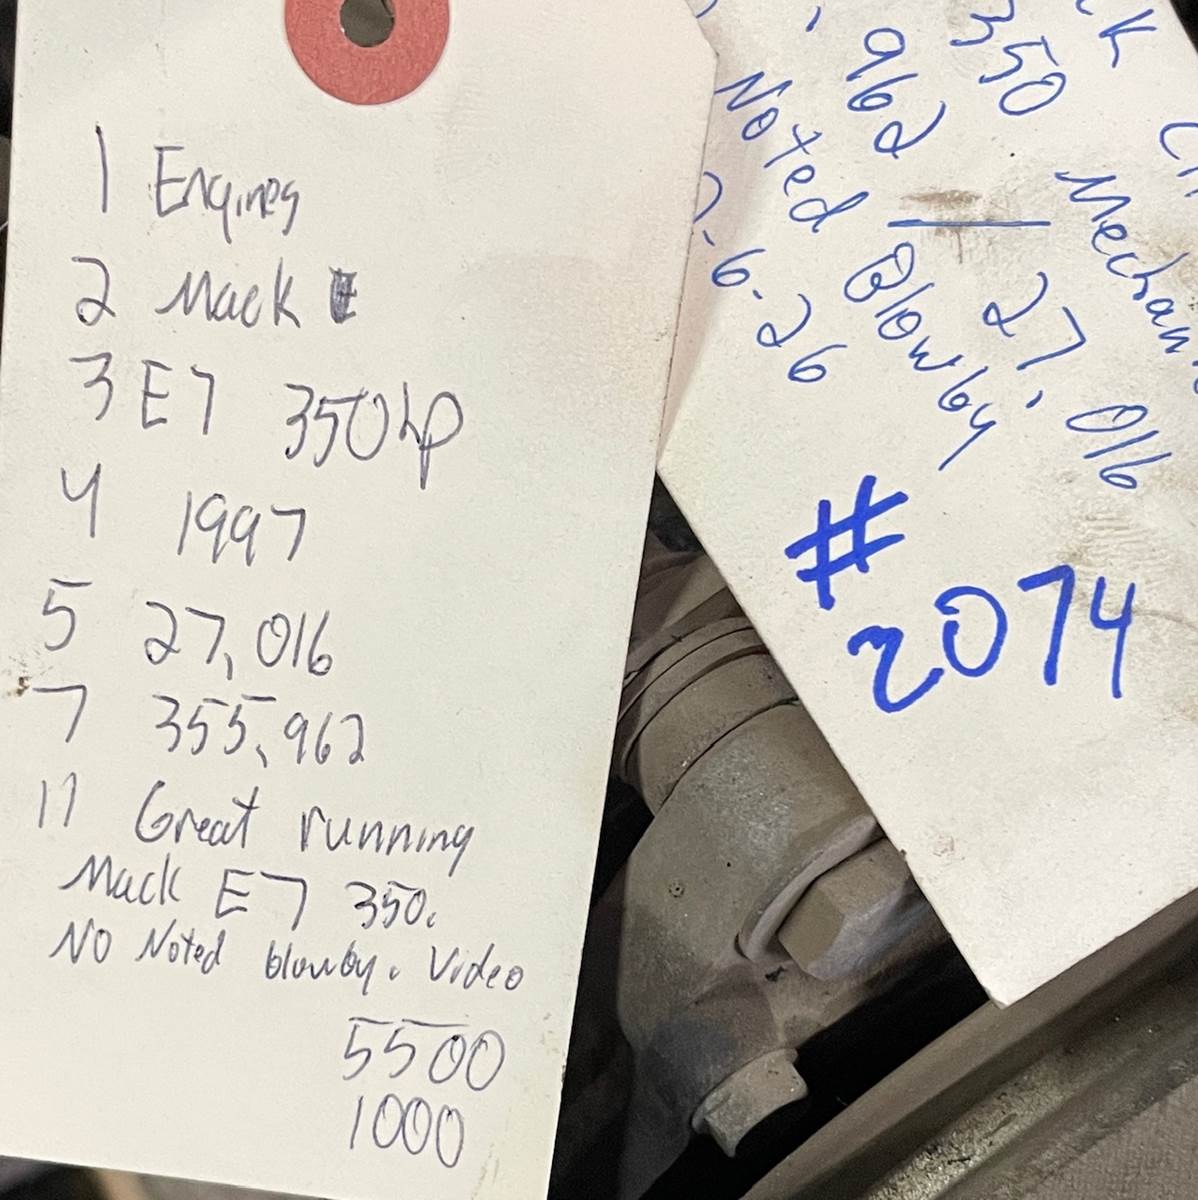 1 Engines
2 Mack
3 E7 350hp
4 1997
5 27,016
7 355,962
11 Great running
Mack E7 350.
No Noted blowby. Video
5500
1000
350 Mechan
962 / 27,016
Noted Blowby
-6-26
#
2074